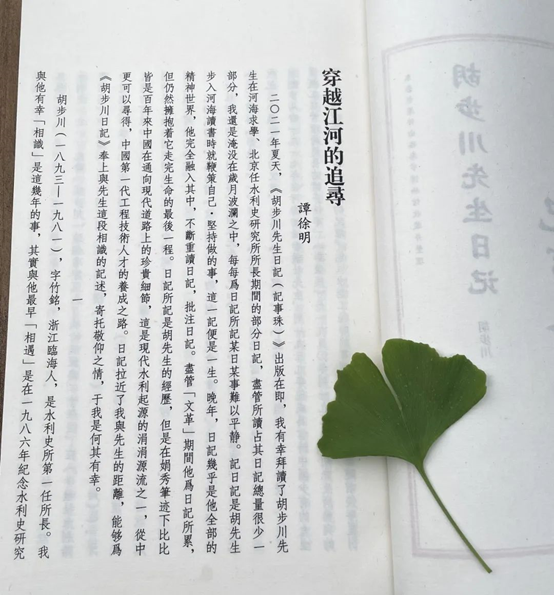 胡步川先生日记
胡步川
穿越江河的追尋
譚徐明
二〇二一年夏天，《胡步川先生日記（記事珠）》出版在即，我有幸拜讀了胡步川先
生在河海求學、北京任水利史研究所所長期間的部分日記，盡管所讀占其日記總量很少一
部分，我還是淹没在歲月波瀾之中，每每爲日記所記某日某事難以平静。記日記是胡先生
步入河海讀書時就鞭策自己·堅持做的事，這一記便是一生。晚年，日記幾乎是他全部的
精神世界，他完全融入其中，不斷重讀日記，批注日記。盡管「文革」期間他爲日記所累，
但仍然擁抱着它走完生命的最後一程。日記所記是胡先生的經歷，但是在娟秀筆迹下比比
皆是百年來中國在通向現代道路上的珍貴細節，這是現代水利起源的涓涓源流之一，從中
更可以尋得，中國第一代工程技術人才的養成之路。日記拉近了我與先生的距離，能够爲
《胡步川日記》奉上與先生這段相識的記述，寄托敬仰之情，于我是何其有幸。
胡步川（一八九三—一九八一），字竹銘，浙江臨海人，是水利史所第一任所長。我
與他有幸「相識」是這幾年的事，其實與他最早「相遇」是在一九八六年紀念水利史研究
一